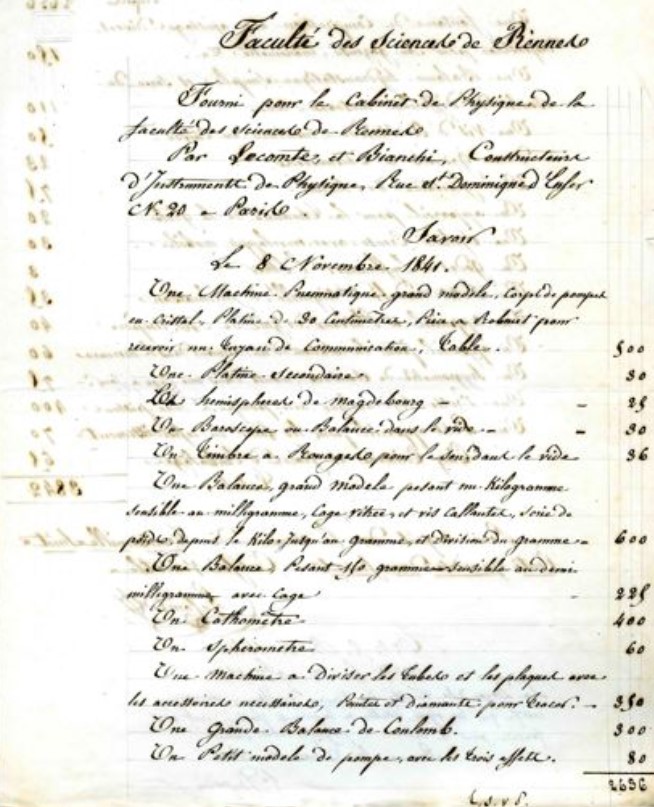 Faculté des Sciences de Rennes
Fourni pour le Cabinet de Physique de la
faculté des Sciences de Rennes
Par Lecomte, et Bianchi, Constructeurs
d'Instruments de Physique, Rue St. Dominique d'Enfer
N. 20 a Paris
Savoir
Le 8 Novembre 1841.
Une Machine Pneumatique grand modèle, corps de pompes
en cristal, Platine de 30 Centimètres, Pièce a Robinet pour
recevoir un tuyau de Communication, Table. 500
Une Platine Secondaire 30
Les hemispheres de magdebourg - - 25
Un Baroscope ou Balance dans le vide - - 30
Un Timbre a Rouages pour le son dans le vide 36
Une Balance, grand modele pesant un Kilogramme
sensible au milligramme, Cage vitrée, et vis callantes, serie de
poids, depuis le Kilo jusqu'au gramme, et division du gramme - 600
Une Balance, Pesant 150 grammes sensible au demi
milligramme avec Cage - 225
Un Cathometre 400
Un Spherometre 60
Une machine a diviser les tubes et les plaques avec
les accessoires necessaires, Pointes et diamants pour tracer. - 350
Une Grande Balance de Coulomb. 300
Un Petit modele de pompe, avec les trois effets. 80
2636
T.s.v.P.